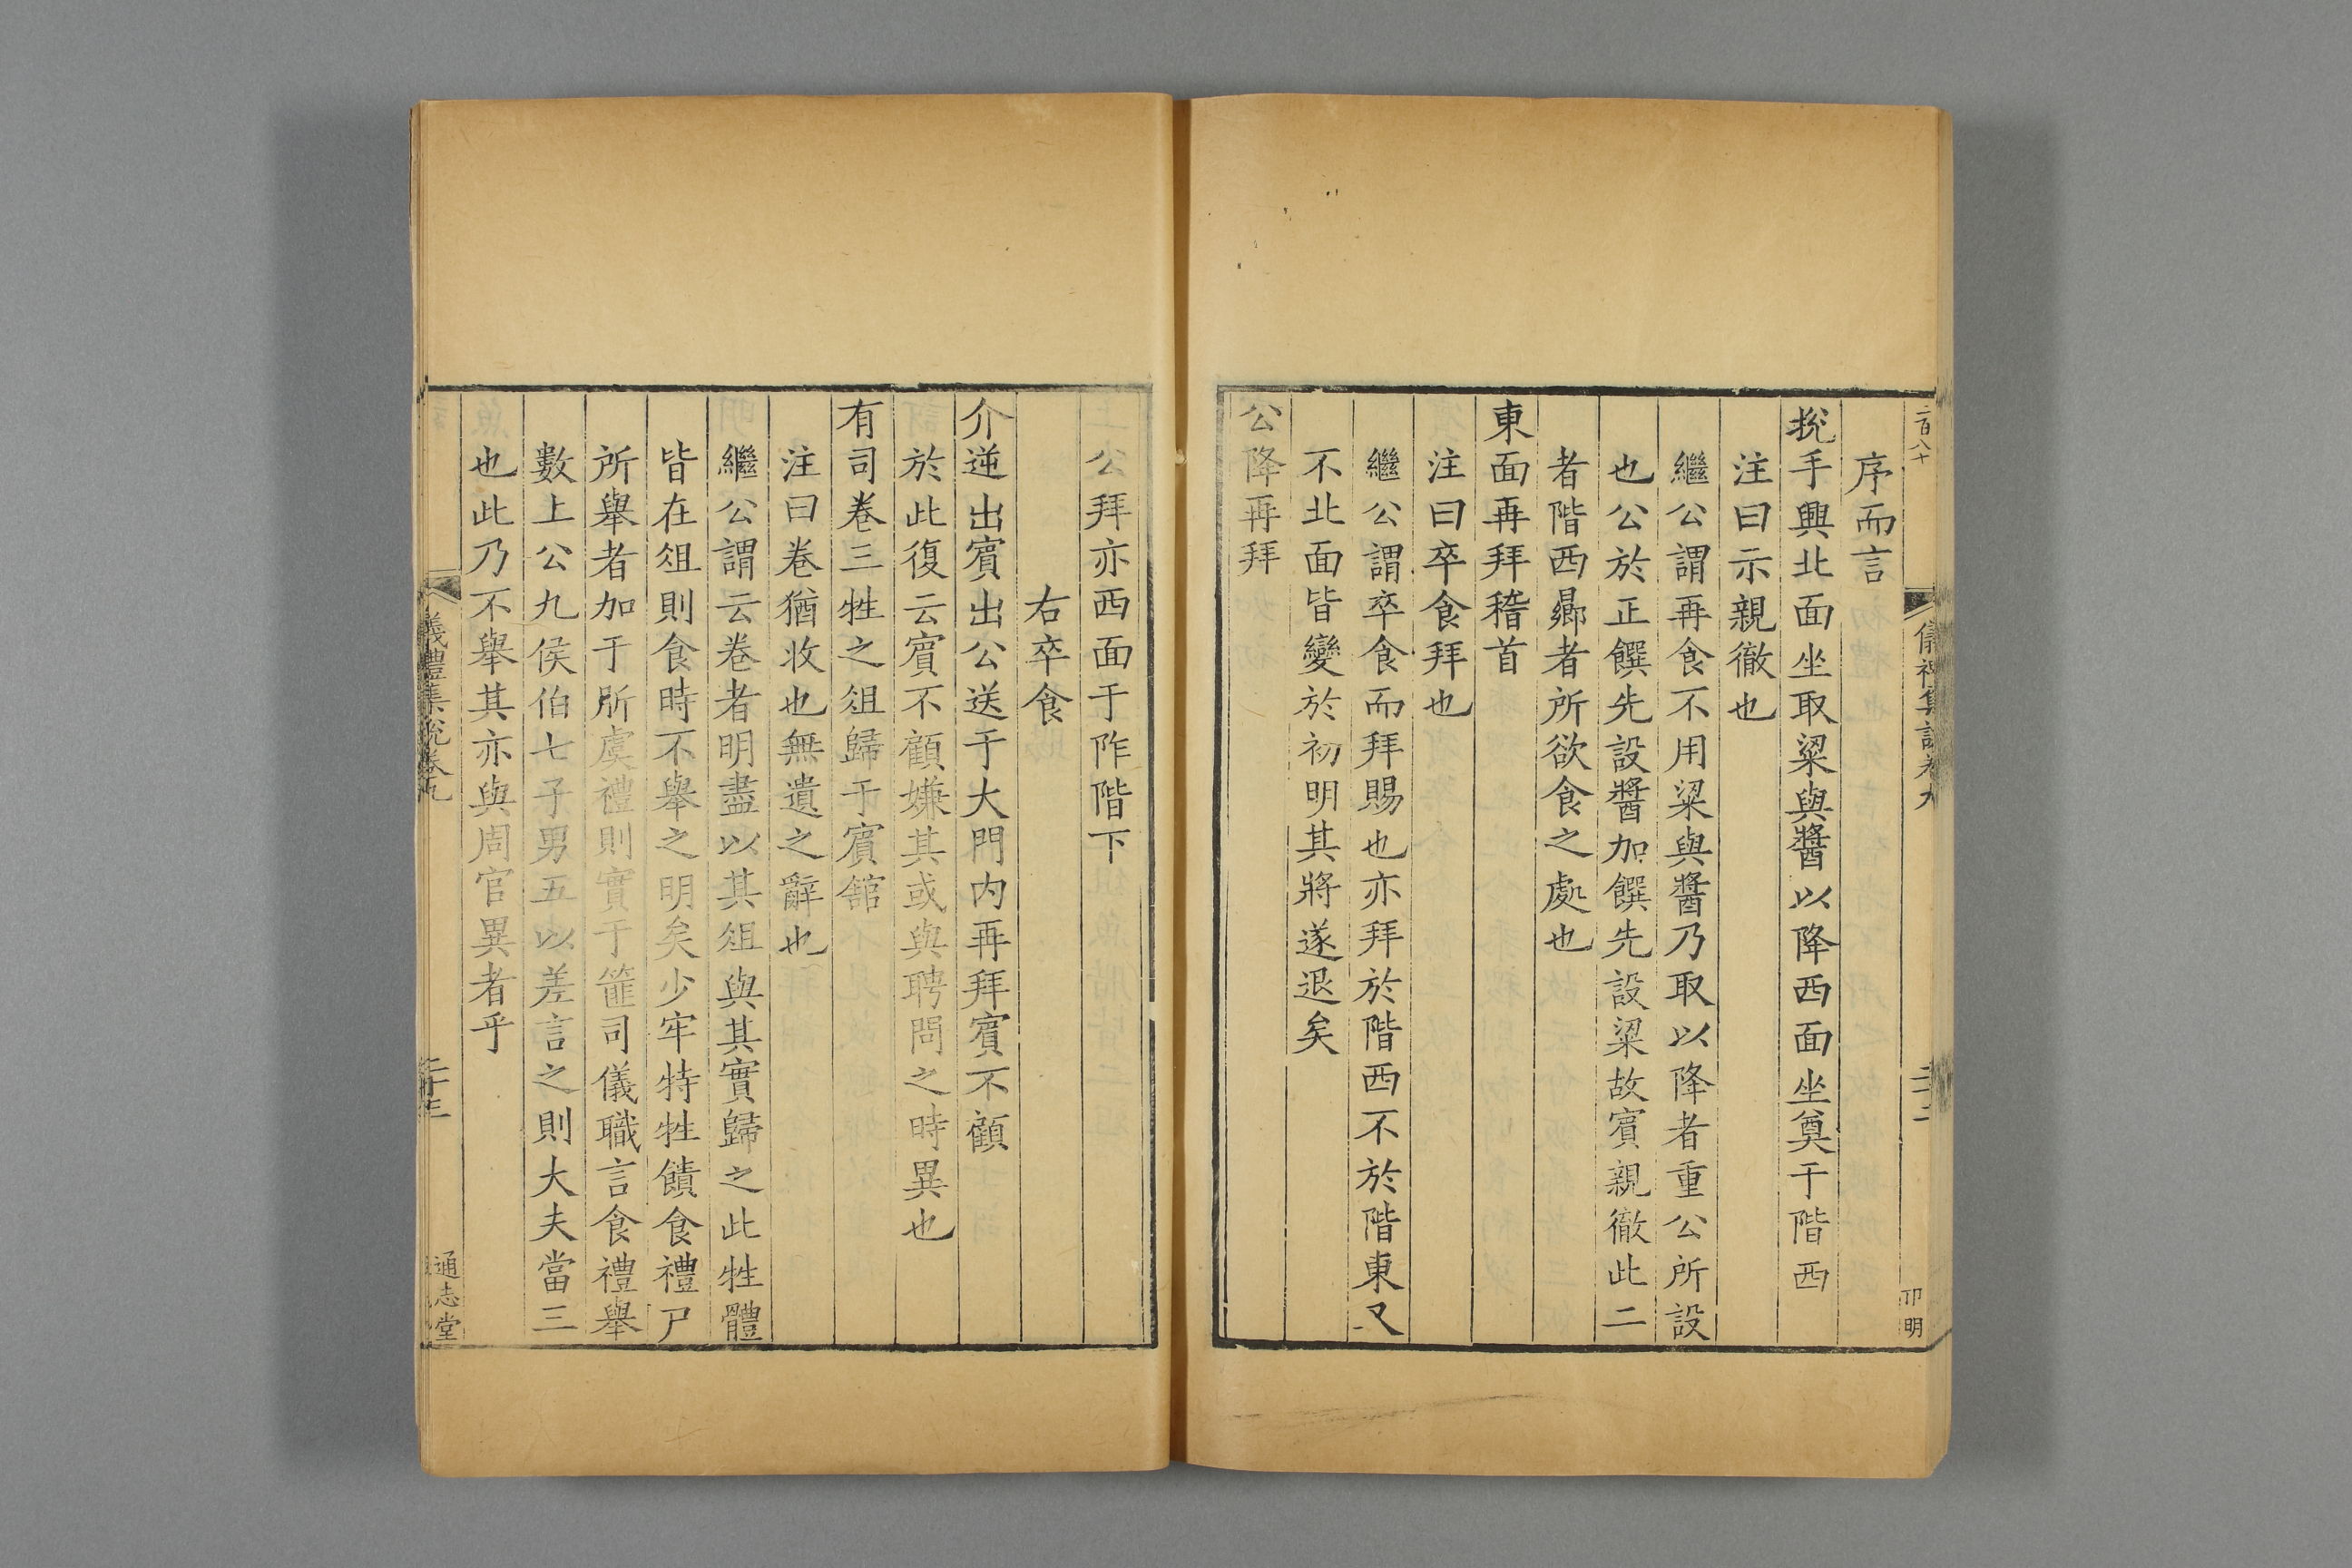 二百八十
儀禮集說卷九
卭明
序而言
挩手興北面坐取粱與醬以降西面坐奠于階西
注曰示親徹也
繼公謂再食不用粱與醬乃取以降者重公所設
也公於正饌先設醬加饌先設粱故賓親徹此二
者階西鄕者所欲食之處也
東面再拜稽首
注曰卒食拜也
繼公謂卒食而拜賜也亦拜於階西不於階東又
不北面皆變於初明其將遂退矣
公降再拜
公拜亦西面于阼階下
右卒食
介逆出賓出公送于大門内再拜賓不顧
於此復云賓不顧嫌其或與聘問之時異也
有司卷三牲之俎歸于賓舘
注曰卷猶收也無遺之辭也
繼公謂云卷者明盡以其俎與其實歸之此牲體
皆在俎則食時不舉之明矣少牢特牲饋食禮尸
所舉者加于肵虞禮則實于篚司儀職言食禮舉
數上公九侯伯七子男五以差言之則大夫當三
也此乃不舉其亦與周官異者乎
儀禮集說卷九
二十三
通志堂